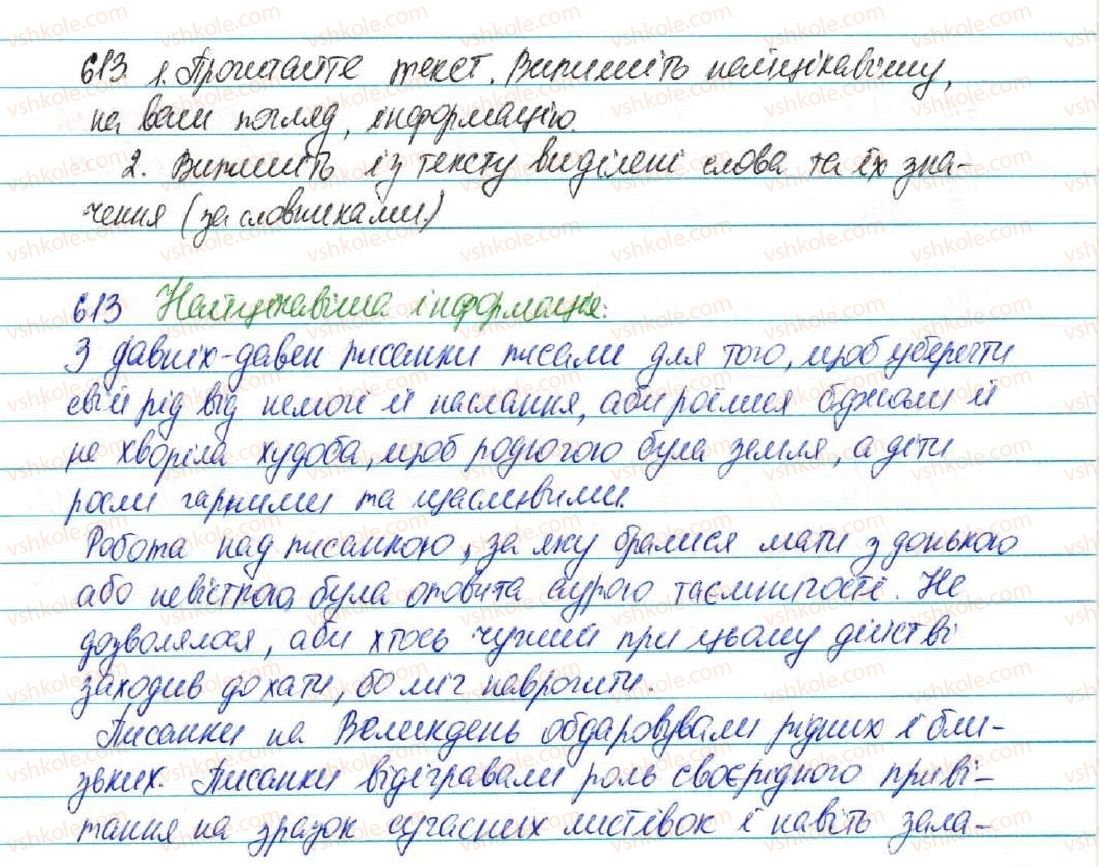 613 1. Прочитайте текст. Випишіть найцікавішу,
на ваш погляд, інформацію.
2. Випишіть із тексту виділені слова та їх зна-
чення (за словниками)
613 Найцікавіша інформація:
З давніх-давен писанки писали для того, щоб уберегти
свій рід від немочі й наслання, аби роїлися бджоли й
не хворіла худоба, щоб родючою була земля, а діти
росли гарними та щасливими.
Робота над писанкою, за яку бралися мати з донькою
або невісткою, була оповита аурою таємничості. Не
дозволялося, аби хтось чужий при цьому дійстві
заходив до хати, бо міг наврочити.
Писанки на Великдень обдаровували рідних і бли-
зьких. Писанки відігравали роль своєрідного приві-
тання на зразок сучасних листівок і навіть зала-